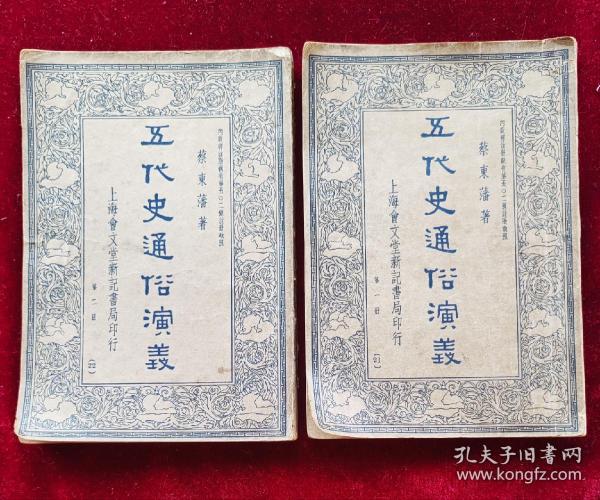 五代史通俗演義
蔡東藩著
上海會文堂新記書局印行
第二册
(22)
五代史通俗演義
蔡東藩著
上海會文堂新記書局印行
第一册
(21)
孔夫子旧书网
www.kongfz.com